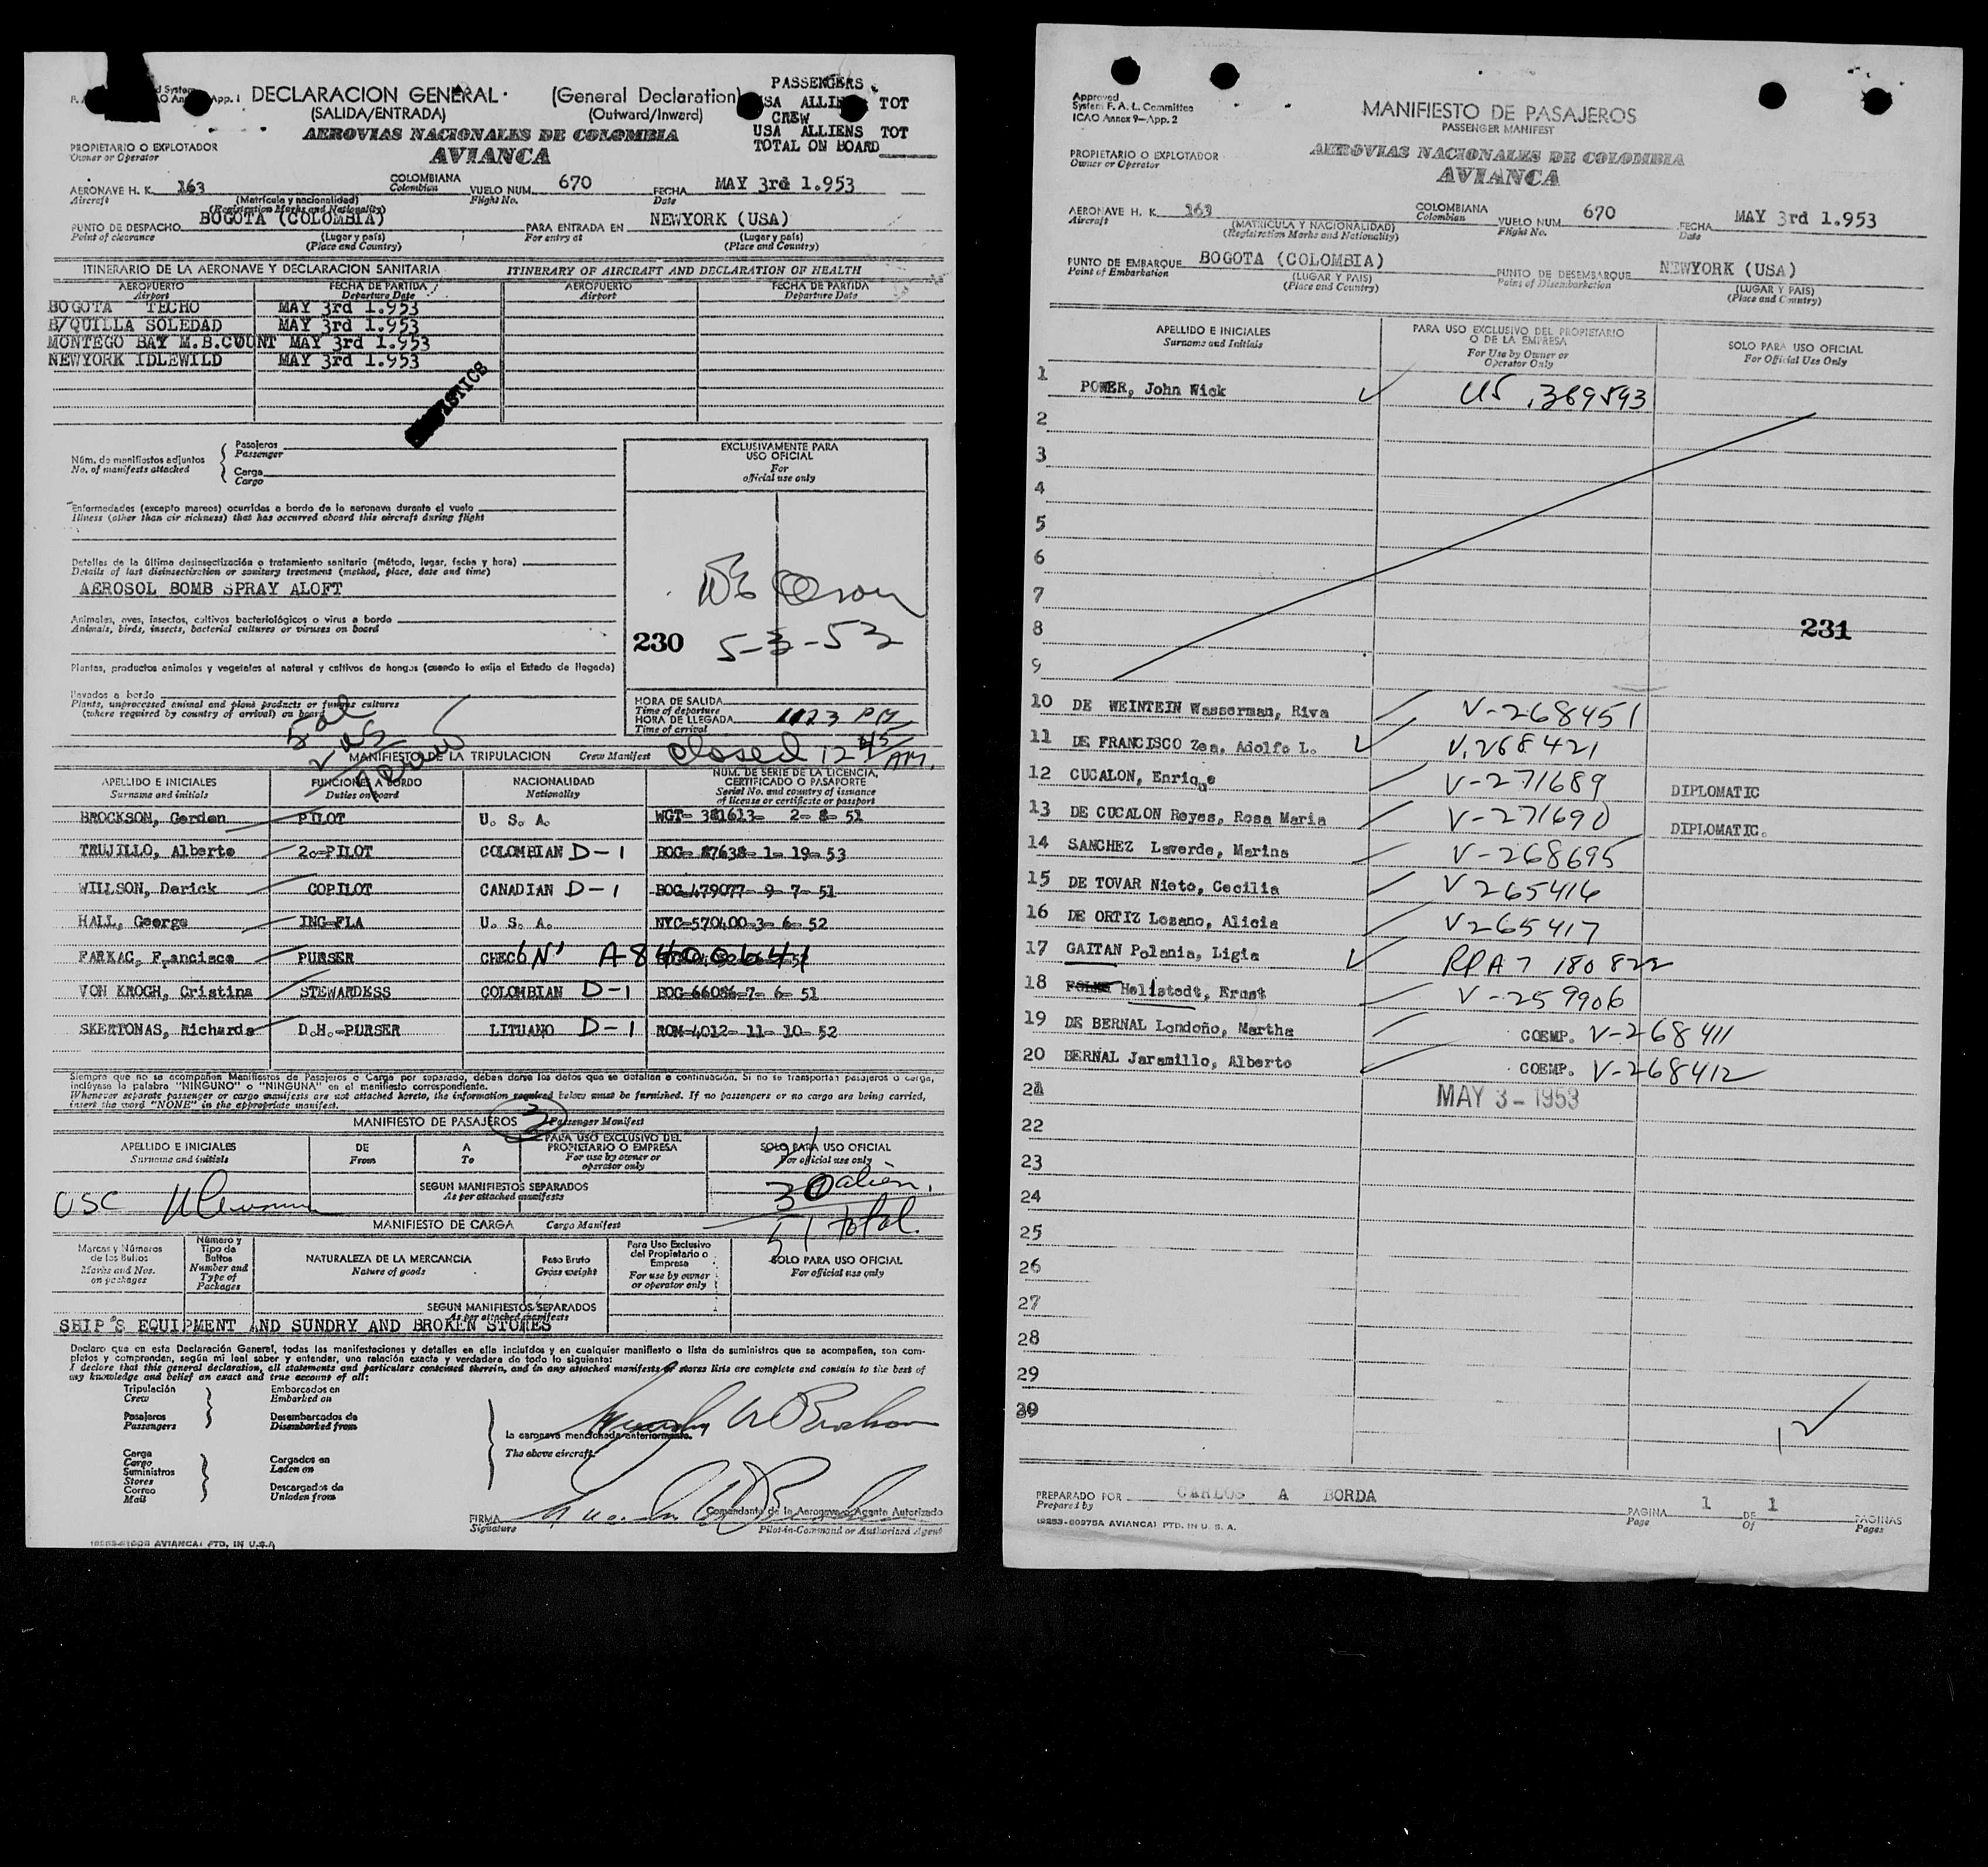 DECLARACION GENERAL (General Declaration)
(SALIDA/ENTRADA) (Outward/Inward)
AEROVIAS NACIONALES DE COLOMBIA
AVIANCA
PASSENGERS
USA ALLIENS TOT
CREW
USA ALLIENS TOT
TOTAL ON BOARD
PROPIETARIO O EXPLOTADOR
Owner or Operator
AERONAVE H. K. 163 COLOMBIANA VUELO NUM. 670 FECHA MAY 3rd 1.953
Aircraft (Matrícula y nacionalidad) Colombian Flight No. Date
(Registration Marks and Nationality)
PUNTO DE DESPACHO BOGOTA (COLOMBIA) PARA ENTRADA EN NEWYORK (USA)
Point of clearance (Lugar y país) For entry at (Lugar y país)
(Place and Country) (Place and Country)
ITINERARIO DE LA AERONAVE Y DECLARACION SANITARIA ITINERARY OF AIRCRAFT AND DECLARATION OF HEALTH
AEROPUERTO FECHA DE PARTIDA AEROPUERTO FECHA DE PARTIDA
Airport Departure Date Airport Departure Date
BOGOTA TECHO MAY 3rd 1.953
B/QUILLA SOLEDAD MAY 3rd 1.953
MONTEGO BAY M.B.COUNT MAY 3rd 1.953
NEWYORK IDLEWILD MAY 3rd 1.953
Núm. de manifiestos adjuntos
No. of manifests attached
Pasajeros
Passenger
Carga
Cargo
EXCLUSIVAMENTE PARA
USO OFICIAL
For
official use only
Enfermedades (excepto mareos) ocurridas a bordo de la aeronave durante el vuelo
Illness (other than air sickness) that has occurred aboard this aircraft during flight
Detalles de la última desinsectización o tratamiento sanitario (método, lugar, fecha y hora)
Details of last disinsectization or sanitary treatment (method, place, date and time)
AEROSOL BOMB SPRAY ALOFT
Animales, aves, insectos, cultivos bacteriológicos o virus a bordo
Animals, birds, insects, bacterial cultures or viruses on board
230 5-3-53
Plantas, productos animales y vegetales al natural y cultivos de hongos (cuando lo exija el Estado de llegada)
llevados a bordo
Plants, unprocessed animal and plant products or fungus cultures
(where required by country of arrival) on board
HORA DE SALIDA
Time of departure
HORA DE LLEGADA 1123 PM
Time of arrival
closed 12 45 AM.
MANIFIESTO DE LA TRIPULACION Crew Manifest
APELLIDO E INICIALES FUNCIONES A BORDO NACIONALIDAD NUM. DE SERIE DE LA LICENCIA, CERTIFICADO O PASAPORTE
Surname and initials Duties on board Nationality Serial No. and country of issuance of license or certificate or passport
BROCKSON, Gordon PILOT U. S. A. WGT- 381613- 2- 8- 51
TRUJILLO, Alberto 2.-PILOT COLOMBIAN D-1 BOG- 87638- 1- 19- 53
WILLSON, Derick COPILOT CANADIAN D-1 BOG-479077- 9- 7- 51
HALL, George ING-FLA U. S. A. NYC-570400-3- 6- 52
FARKAC, Francisco PURSER CHECO
VON KROGH, Cristina STEWARDESS COLOMBIAN D-1 BOG-66086-7- 6- 51
SKERTONAS, Richards D.H.-PURSER LITUANO D-1 ROM-4012- 11- 10- 52
Siempre que no se acompañen Manifiestos de Pasajeros o Carga por separado, deben darse los datos que se detallan a continuación. Si no se transportan pasajeros o carga,
inclúyase la palabra "NINGUNO" o "NINGUNA" en el manifiesto correspondiente.
Whenever separate passenger or cargo manifests are not attached hereto, the information required below must be furnished. If no passengers or no cargo are being carried,
insert the word "NONE" in the appropriate manifest.
MANIFIESTO DE PASAJEROS 3 Passenger Manifest
APELLIDO E INICIALES DE A PARA USO EXCLUSIVO DEL PROPIETARIO O EMPRESA SOLO PARA USO OFICIAL
Surname and initials From To For use by owner or operator only For official use only
SEGUN MANIFIESTOS SEPARADOS
As per attached manifests
USC
30 alien.
51 total.
MANIFIESTO DE CARGA Cargo Manifest
Marcas y Números de los Bultos
Marks and Nos. on packages
Número y Tipo de Bultos
Number and Type of Packages
NATURALEZA DE LA MERCANCIA
Nature of goods
Peso Bruto
Gross weight
Para Uso Exclusivo del Propietario o Empresa
For use by owner or operator only
SOLO PARA USO OFICIAL
For official use only
SEGUN MANIFIESTOS SEPARADOS
As per attached manifests
SHIP'S EQUIPMENT AND SUNDRY AND BROKEN STORES
Declaro que en esta Declaración General, todas las manifestaciones y detalles en ella incluídos y en cualquier manifiesto o lista de suministros que se acompañen, son com-
pletos y comprenden, según mi leal saber y entender, una relación exacta y verdadera de todo lo siguiente:
I declare that this general declaration, all statements and particulars contained therein, and in any attached manifests or stores lists are complete and contain to the best of
my knowledge and belief an exact and true account of all:
Tripulación Embarcados en
Crew Embarked on
Pasajeros Desembarcados de
Passengers Disembarked from
la aeronave mencionada anteriormente.
The above aircraft.
Carga
Cargo Cargados en
Suministros Laden on
Stores
Correo Descargados de
Mail Unladen from
FIRMA Comandante de la Aeronave o Agente Autorizado
Signature Pilot-in-Command or Authorized Agent
Approved
System F. A. L. Committee
ICAO Annex 9—App. 2
MANIFIESTO DE PASAJEROS
PASSENGER MANIFEST
AEROVIAS NACIONALES DE COLOMBIA
AVIANCA
PROPIETARIO O EXPLOTADOR
Owner or Operator
AERONAVE H. K. 163 COLOMBIANA VUELO NUM. 670 FECHA MAY 3rd 1.953
Aircraft (MATRICULA Y NACIONALIDAD) Colombian Flight No. Date
(Registration Marks and Nationality)
PUNTO DE EMBARQUE BOGOTA (COLOMBIA) PUNTO DE DESEMBARQUE NEWYORK (USA)
Point of Embarkation (LUGAR Y PAIS) Point of Disembarkation (LUGAR Y PAIS)
(Place and Country) (Place and Country)
APELLIDO E INICIALES PARA USO EXCLUSIVO DEL PROPIETARIO O DE LA EMPRESA SOLO PARA USO OFICIAL
Surname and Initials For Use by Owner or Operator Only For Official Use Only
1 POWER, John Wick US .369593
2
3
4
5
6
7
8 231
9
10 DE WEINTEIN Wasserman, Riva V-268451
11 DE FRANCISCO Zea, Adolfo L. V.268421
12 CUCALON, Enrique V-271689 DIPLOMATIC
13 DE CUCALON Reyes, Rosa Maria V-271690 DIPLOMATIC.
14 SANCHEZ Laverde, Marina V-268695
15 DE TOVAR Nieto, Cecilia V 265416
16 DE ORTIZ Lozano, Alicia V265417
17 GAITAN Polania, Ligia RPA7 180822
18 Hellstedt, Ernst V-259906
19 DE BERNAL Londoño, Martha COEMP. V-268411
20 BERNAL Jaramillo, Alberto COEMP. V-268412
21 MAY 3-1953
22
23
24
25
26
27
28
29
30
12
PREPARADO POR CARLOS A BORDA PAGINA 1 DE 1 PAGINAS
Prepared by Page Of Pages
(9253-60975A AVIANCA) PTD. IN U. S. A.